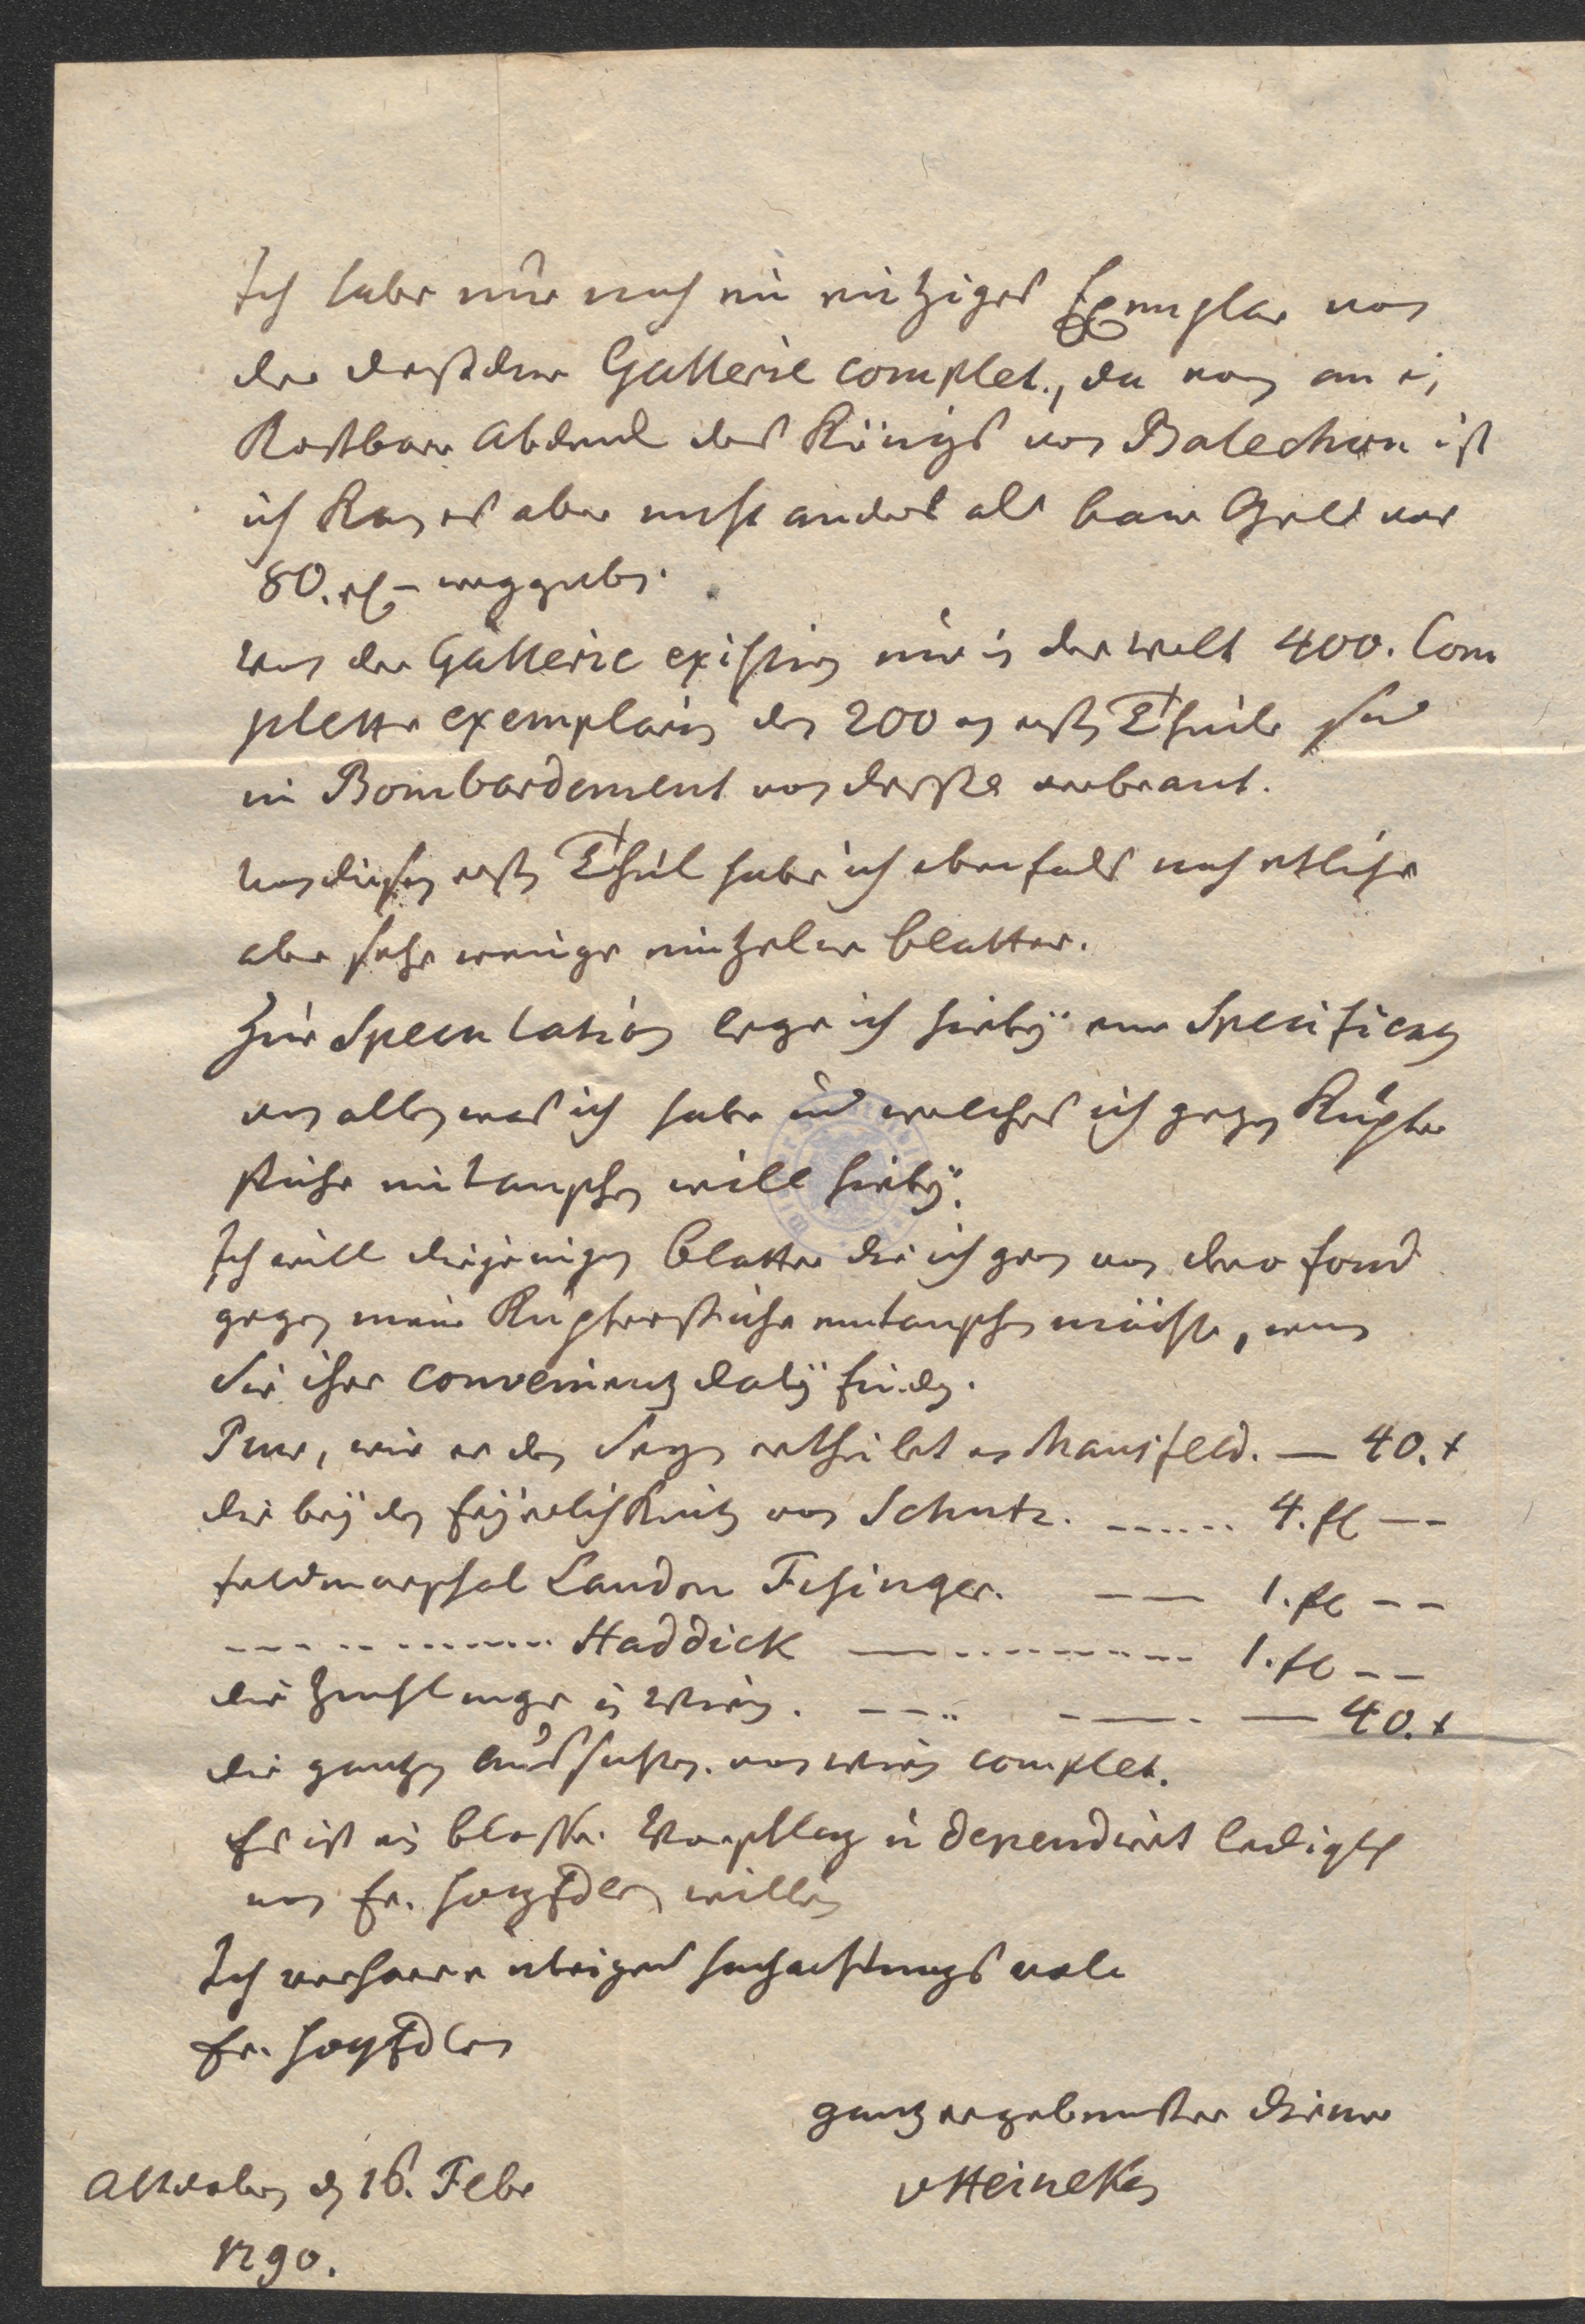 Ich habe nur noch ein eintziges Exemplar von
der dreßdner Gallerie complet., da von an ein
Kostbarer Abdruck des Königs von Balechou ist
ich Kan es aber nicht anders als baar Geld vor
80. rh - weggeben.
Von der Gallerie existiren nur in der welt 400. Com
plette exemplarien den 200 ersten Theile sind
im Bombardement von dreßden verbrant.
Von diesen ersten Theil habe ich ebenfals noch etliche
aber sehr wenige eintzelne blatter.
Zur Speculation lege ich hierbey eine Specification
von allen was ich habe und welches ich gegen Kupfer
stiche eintauschen will hierbey.
Ich will diejenigen blatter die ich gern von dero fond
gegen meine Kupferstiche eintauschen möchte, wenn
Sie ihre convenientz dabey finden.
Pius, wie er den Segen ertheilet Mansfeld. — 40. x
die beyden feyerlichkeiten von Schutz. ...... 4. fl --
feldmarschal Laudon Fesinger. -- 1. fl --
--- Haddick --- 1. fl --
die in Wien. --- 40. x
die gantzen aussichten. von wien complet.
Es ist ein blosser Vorschlag u dependiret lediglich
von Ew. willen
Ich verharre übrigens hochachtungs voll
Ew.
gantz ergebenster diener
vHeineken
Altdobern den 16. Febr
1790.